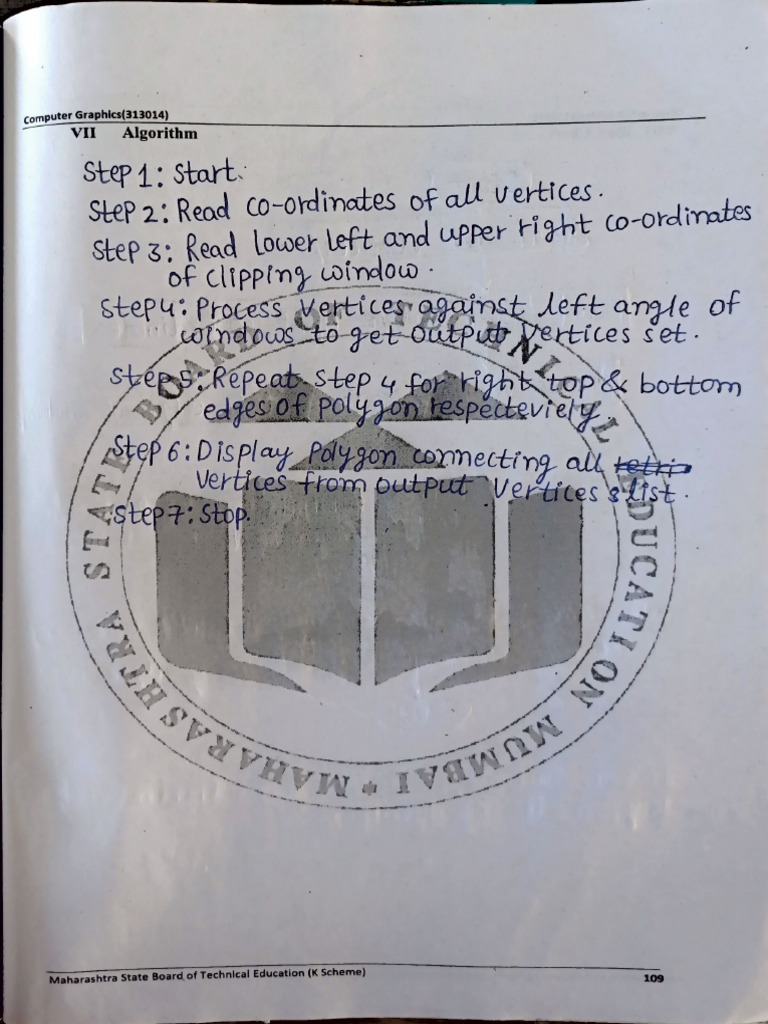 Computer Graphics(313014)
VII Algorithm
Step 1: Start.
Step 2: Read co-ordinates of all vertices.
Step 3: Read lower left and upper right co-ordinates
of clipping window.
Step 4: Process vertices against left angle of
windows to get output vertices set.
Step 5: Repeat step 4 for right top & bottom
edges of polygon respecteviely
Step 6: Display Polygon connecting all
vertices from output vertices list.
Step 7: Stop.
MAHARASHTRA STATE BOARD OF TECHNICAL EDUCATION MUMBAI *
Maharashtra State Board of Technical Education (K Scheme)
109